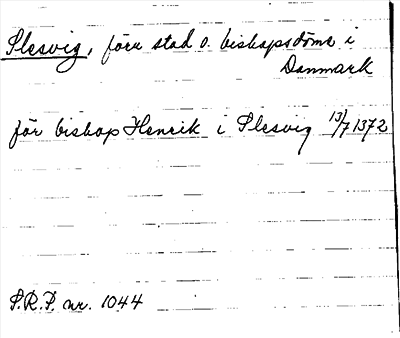 Slesvig, förr stad o. biskopsdöme i
Danmark
för biskop Henrik i Slesvig 13/7 1372
S.R.P. nr. 1044